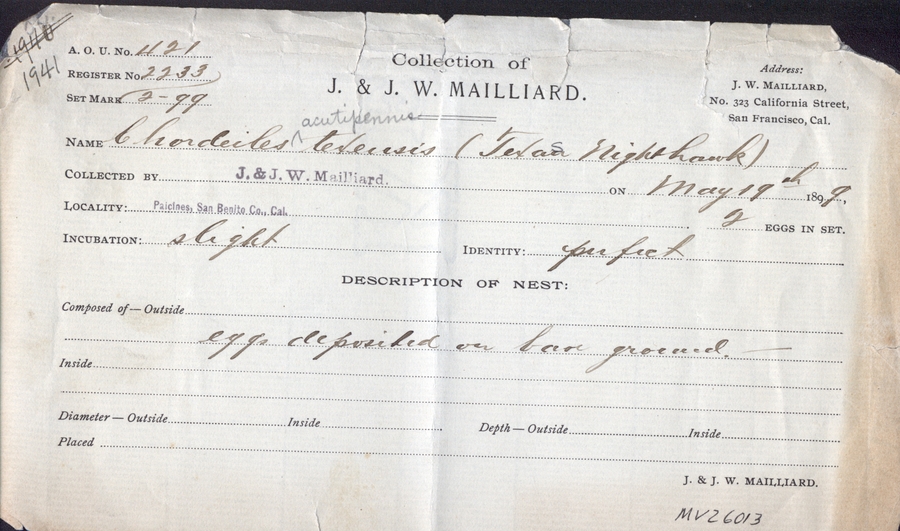 1940
1941
A. O. U. No. 421
REGISTER No. 2233
SET MARK 2-99
Collection of
J. & J. W. MAILLIARD.
Address:
J. W. MAILLIARD,
No. 323 California Street,
San Francisco, Cal.
acutipennis
NAME Chordeiles texensis (Texas Nighthawk)
COLLECTED BY J. & J. W. Mailliard. ON May 19th 1899,
LOCALITY: Paicines, San Benito Co., Cal. 2 EGGS IN SET.
INCUBATION: slight IDENTITY: perfect
DESCRIPTION OF NEST:
Composed of—Outside
eggs deposited on bare ground.
Inside
Diameter—Outside Inside Depth—Outside Inside
Placed
J. & J. W. MAILLIARD.
MVZ6013